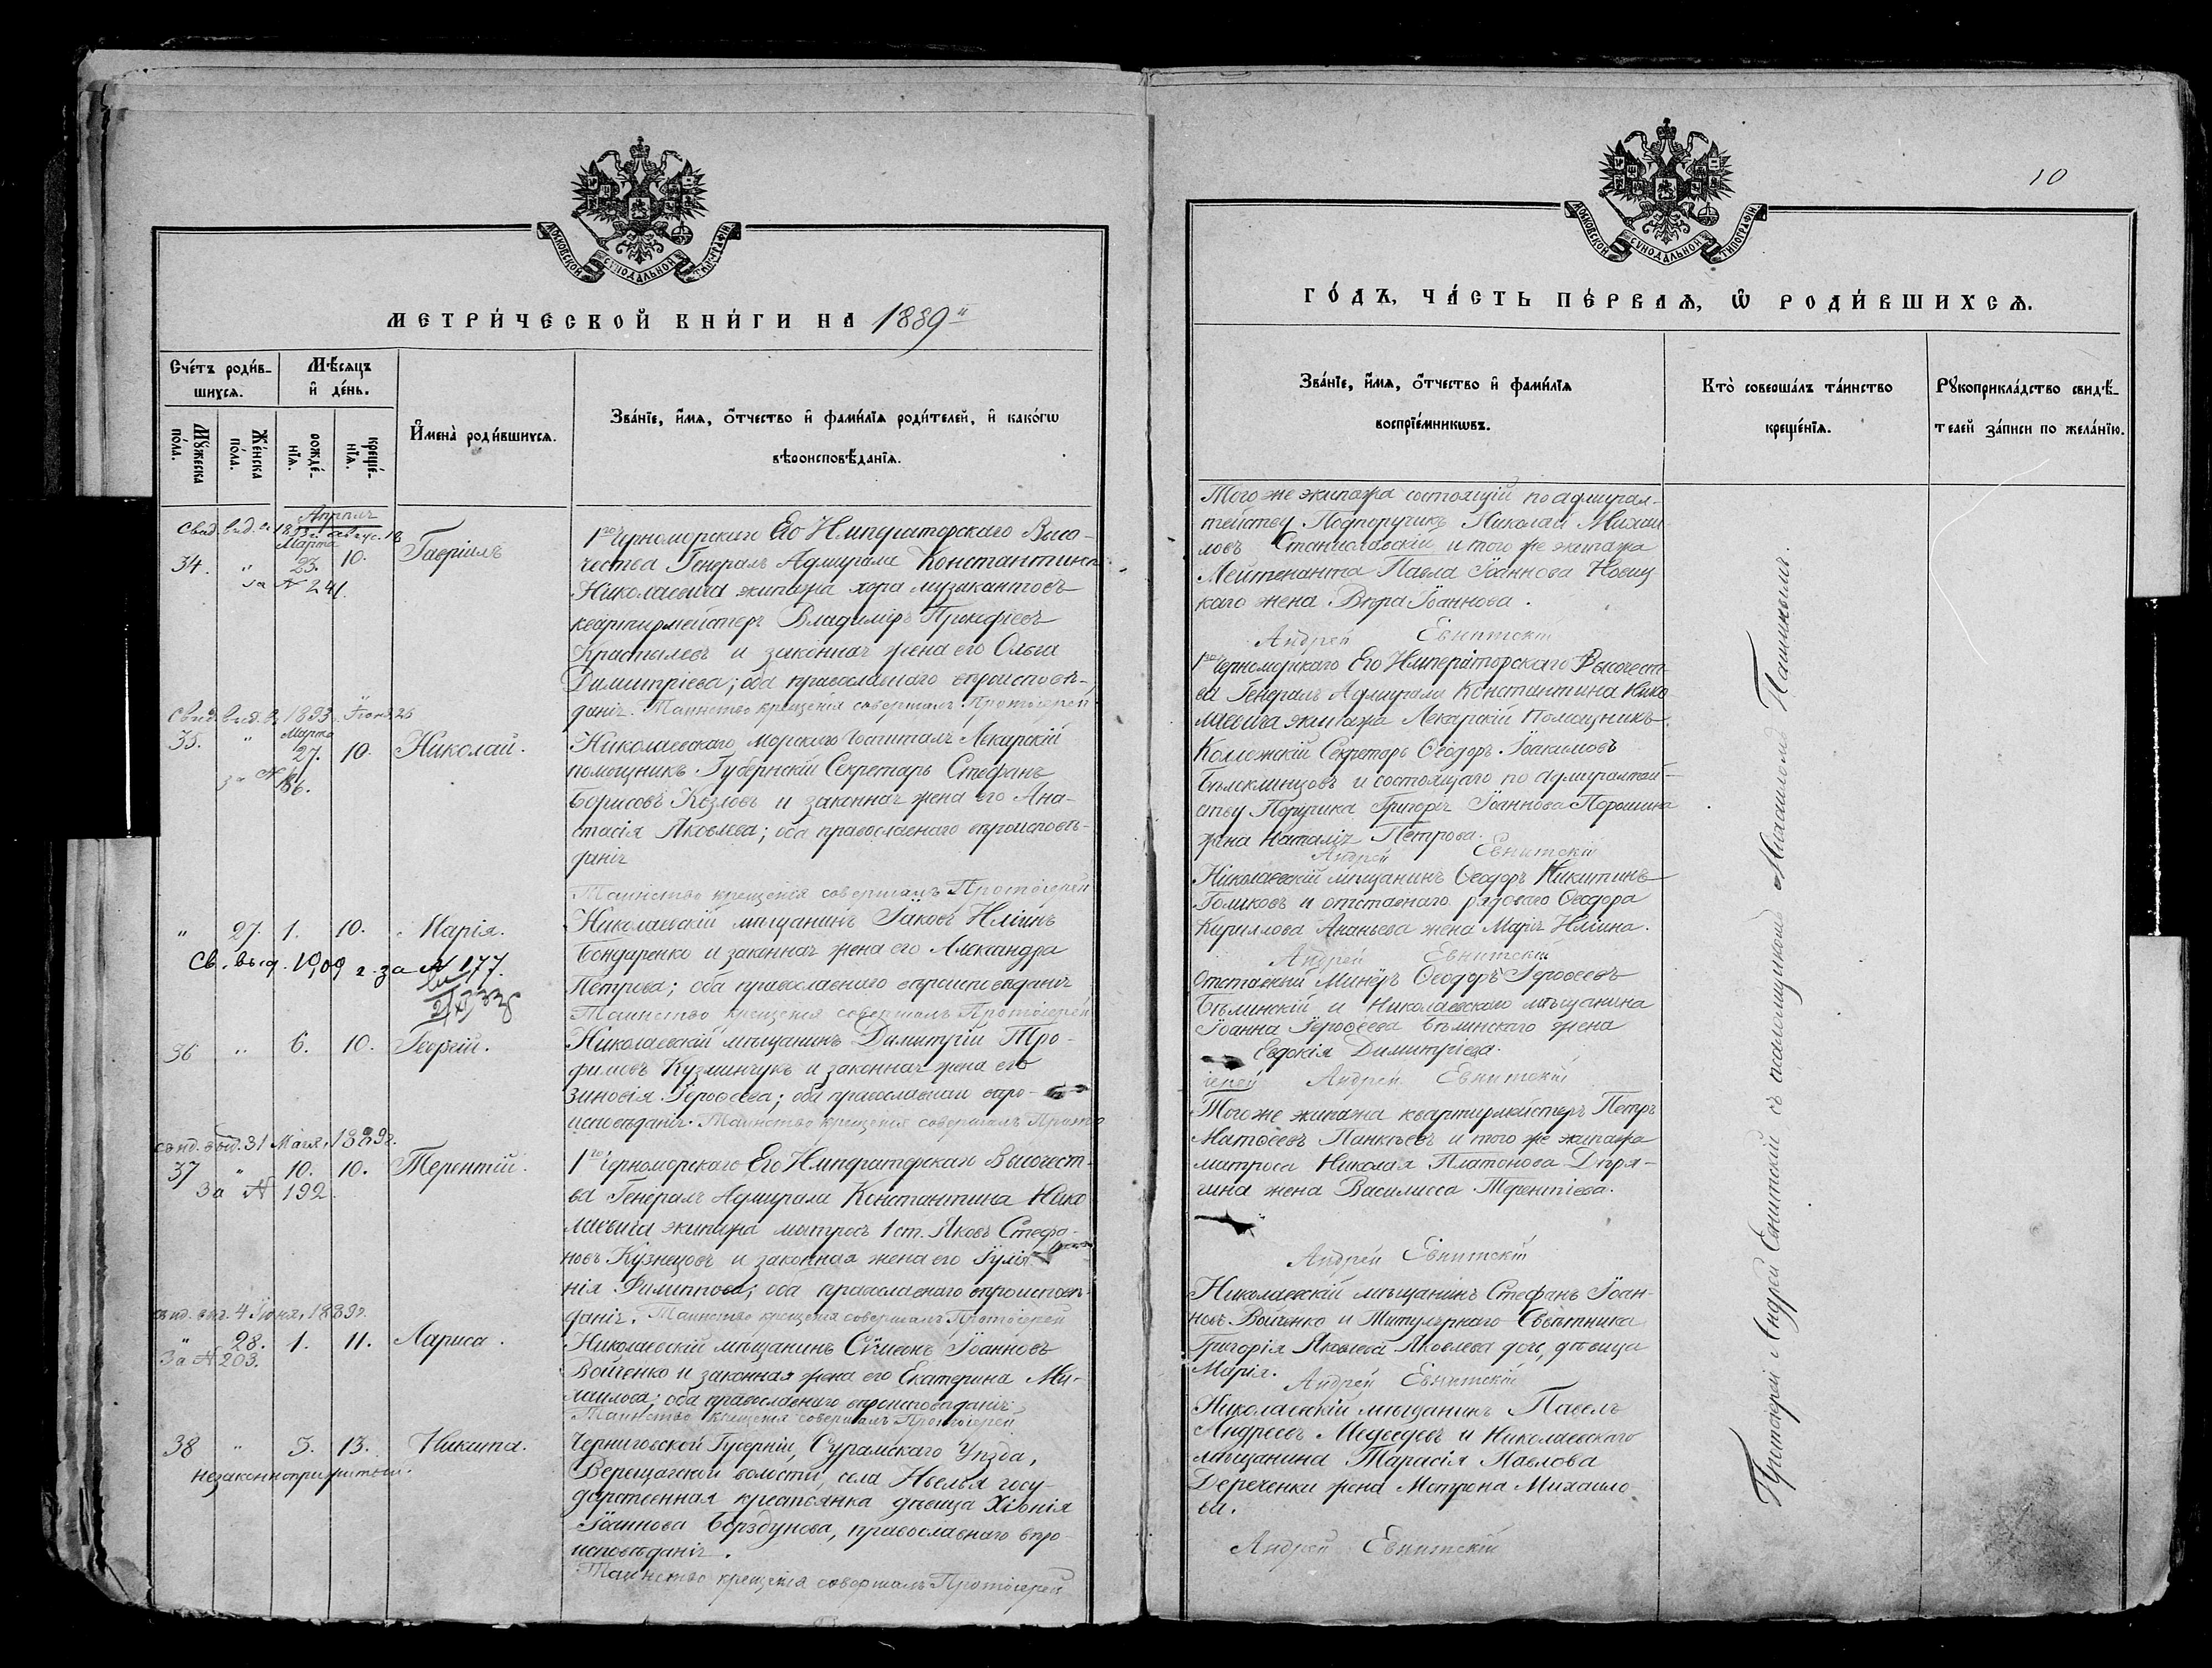 МОСКОВСКОЙ СѴНОДАЛЬНОЙ ТИПОГРАФІИ.
МЕТРИ́ЧЕСКОЙ КНИ́ГИ НА 1889й
Сче́тъ роди́в-
шихсѧ.
Мѣ́сѧцъ
и҆ де́нь.
Мꙋ́жеска
по́ла.
Же́нска
по́ла.
рожде́-
нїѧ.
креще́-
нїѧ.
И҆мена̀ роди́вшихсѧ.
Зва́нїе, и҆́мѧ, ѻ҆́тчество и҆ фами́лїѧ роди́телей, и҆ како́гѡ
вѣроисповѣ́данїѧ.
Апрѣль
Свид. выд. въ 1893 г. август. 18
Марта
34. " 23. 10. Гавріилъ
За № 241.
1го Черноморскаго Его Императорскаго Высо-
чества Генералъ Адмирала Константина
Николаевича экипажа хора музыкантовъ
квартирмейстеръ Владиміръ Прокофіевъ
Крастылевъ и законная жена его Ольга
Димитріева; оба православнаго вѣроисповѣ-
данія. Таинство крещенія совершалъ Протоіерей
Свид. выд. въ 1893 Іюня 26
Марта
35. " 27. 10. Николай.
за № 186.
Николаевскаго Морскаго Госпиталя Лекарскій
помощникъ Губернскій Секретарь Стефанъ
Борисовъ Козловъ и законная жена его Ана-
стасія Яковлева; оба православнаго вѣроисповѣ-
данія
Таинство крещенія совершалъ Протоіерей
" 27. 1. 10. Марія.
Св. выд. 1909 г. за № 177.
Николаевскій мѣщанинъ Іаковъ Иліинъ
Бондаренко и законная жена его Александра
Петрова; оба православнаго вѣроисповѣданія
Таинство крещенія совершалъ Протоіерей
36 " 6. 10. Георгій.
Николаевскій мѣщанинъ Димитрій Тро-
фимовъ Кузминчукъ и законная жена его
Зиновія Іероѳеева; оба православнаго вѣро-
исповѣданія. Таинство крещенія совершалъ Прото
свид. выд. 31 Мая, 1889г.
37 " 10. 10. Терентій.
За № 192.
1го Черноморскаго Его Императорскаго Высочест-
ва Генералъ Адмирала Константина Нико
лаевича экипажа матросъ 1 ст. Яковъ Стефа-
новъ Кузнецовъ и законная жена его Іулія-
нія Филиппова; оба православнаго вѣроисповѣ-
данія. Таинство крещенія совершалъ Протоіерей
свид. выд. 4 Іюня, 1889г.
" 28. 1. 11. Лариса.
За № 203.
Николаевскій мѣщанинъ Сѵмеонъ Іоанновъ
Войченко и законная жена его Екатерина Ми-
хаилова; оба православнаго вѣроисповѣданія
Таинство крещенія совершалъ Протоіерей
38 " 3. 13. Никита.
незаконноприжитый.
Черниговской Губерніи, Суражскаго Уѣзда,
Верещагской волости, села госу-
дарственная крестьянка дѣвица Хіонія
Іоаннова Борздунова, православнаго вѣро-
исповѣданія.
Таинство крещенія совершалъ Протоіерей
10
МОСКОВСКОЙ СѴНОДАЛЬНОЙ ТИПОГРАФІИ.
ГО́ДЪ, ЧА́СТЬ ПЕ́РВАѦ, Ѡ҆ РОДИ́ВШИХСѦ.
Зва́нїе, и҆́мѧ, ѻ҆́тчество и҆ фами́лїѧ
воспрїе́мникѡвъ.
Кто̀ соверша́лъ та́инство
креще́нїѧ.
Рꙋкоприкла́дство свидѣ́-
телей за́писи по жела́нїю.
Того же экипажа состоящій по адмирал-
тейству Подпоручикъ Николай Михаи-
ловъ Станиславскій и того же экипажа
Лейтенанта Павла Іоаннова Новиц
каго жена Вѣра Іоаннова.
Андрей Евнитскій
1го Черноморскаго Его Императорскаго Высочест-
ва Генералъ Адмирала Константина Нико
лаевича экипажа Лекарскій Помощникъ
Коллежскій Секретарь Ѳеодоръ Іоакимовъ
и состоящаго по адмиралтей-
ству Поручика Григорія Іоаннова Порошина
жена Наталія Петрова.
Андрей Евнитскій
Николаевскій мѣщанинъ Ѳеодоръ Никитинъ
Голиковъ и отставнаго рядоваго Ѳеодора
Кириллова Ананьева жена Марія Иліина.
Андрей Евнитскій
Отставный Минёръ Ѳеодоръ Іероѳеевъ
Бѣлинскій и Николаевскаго мѣщанина
Іоанна Іероѳеева Бѣлинскаго жена
Евдокія Димитріева.
іерей Андрей Евнитскій
Того же экипажа квартирмейстеръ Петръ
Матѳеевъ Панктьевъ и того же экипажа
матроса Николая Платонова Дѣря-
гина жена Василисса Терентіева.
Андрей Евнитскій
Николаевскій мѣщанинъ Стефанъ Іоан-
новъ Войченко и Титулярнаго Совѣтника
Григорія Яковлева Яковлева дочь, дѣвица
Марія.
Андрей Евнитскій
Николаевскій мѣщанинъ Павелъ
Андреевъ Медведевъ и Николаевскаго
мѣщанина Тарасія Павлова
Дереченки жена Матрона Михаило
ва.
Андрей Евнитскій
Протоіерей Андрей Евнитскій съ псаломщикомъ Михаиломъ Пашинымъ.